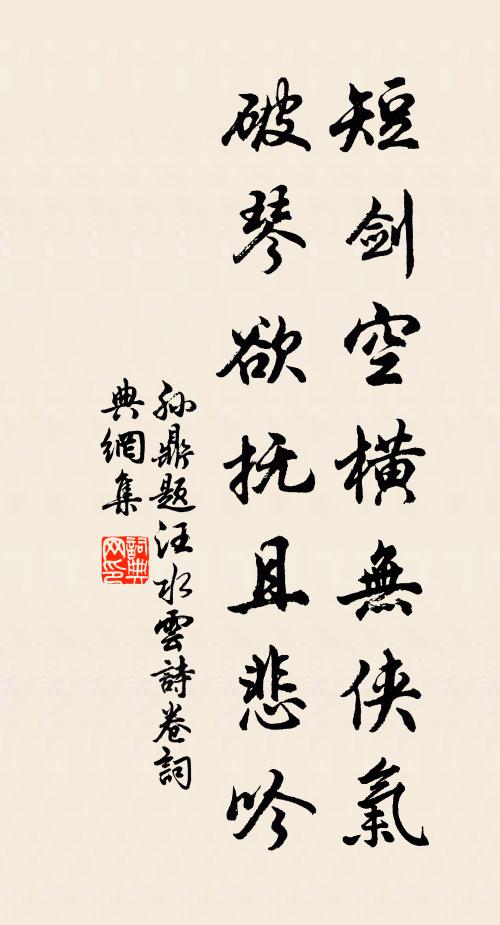 短劍空橫無俠氣
破琴欲抚且悲吟
孙鼎题汪水雲詩卷詞
典網集
詞典网印